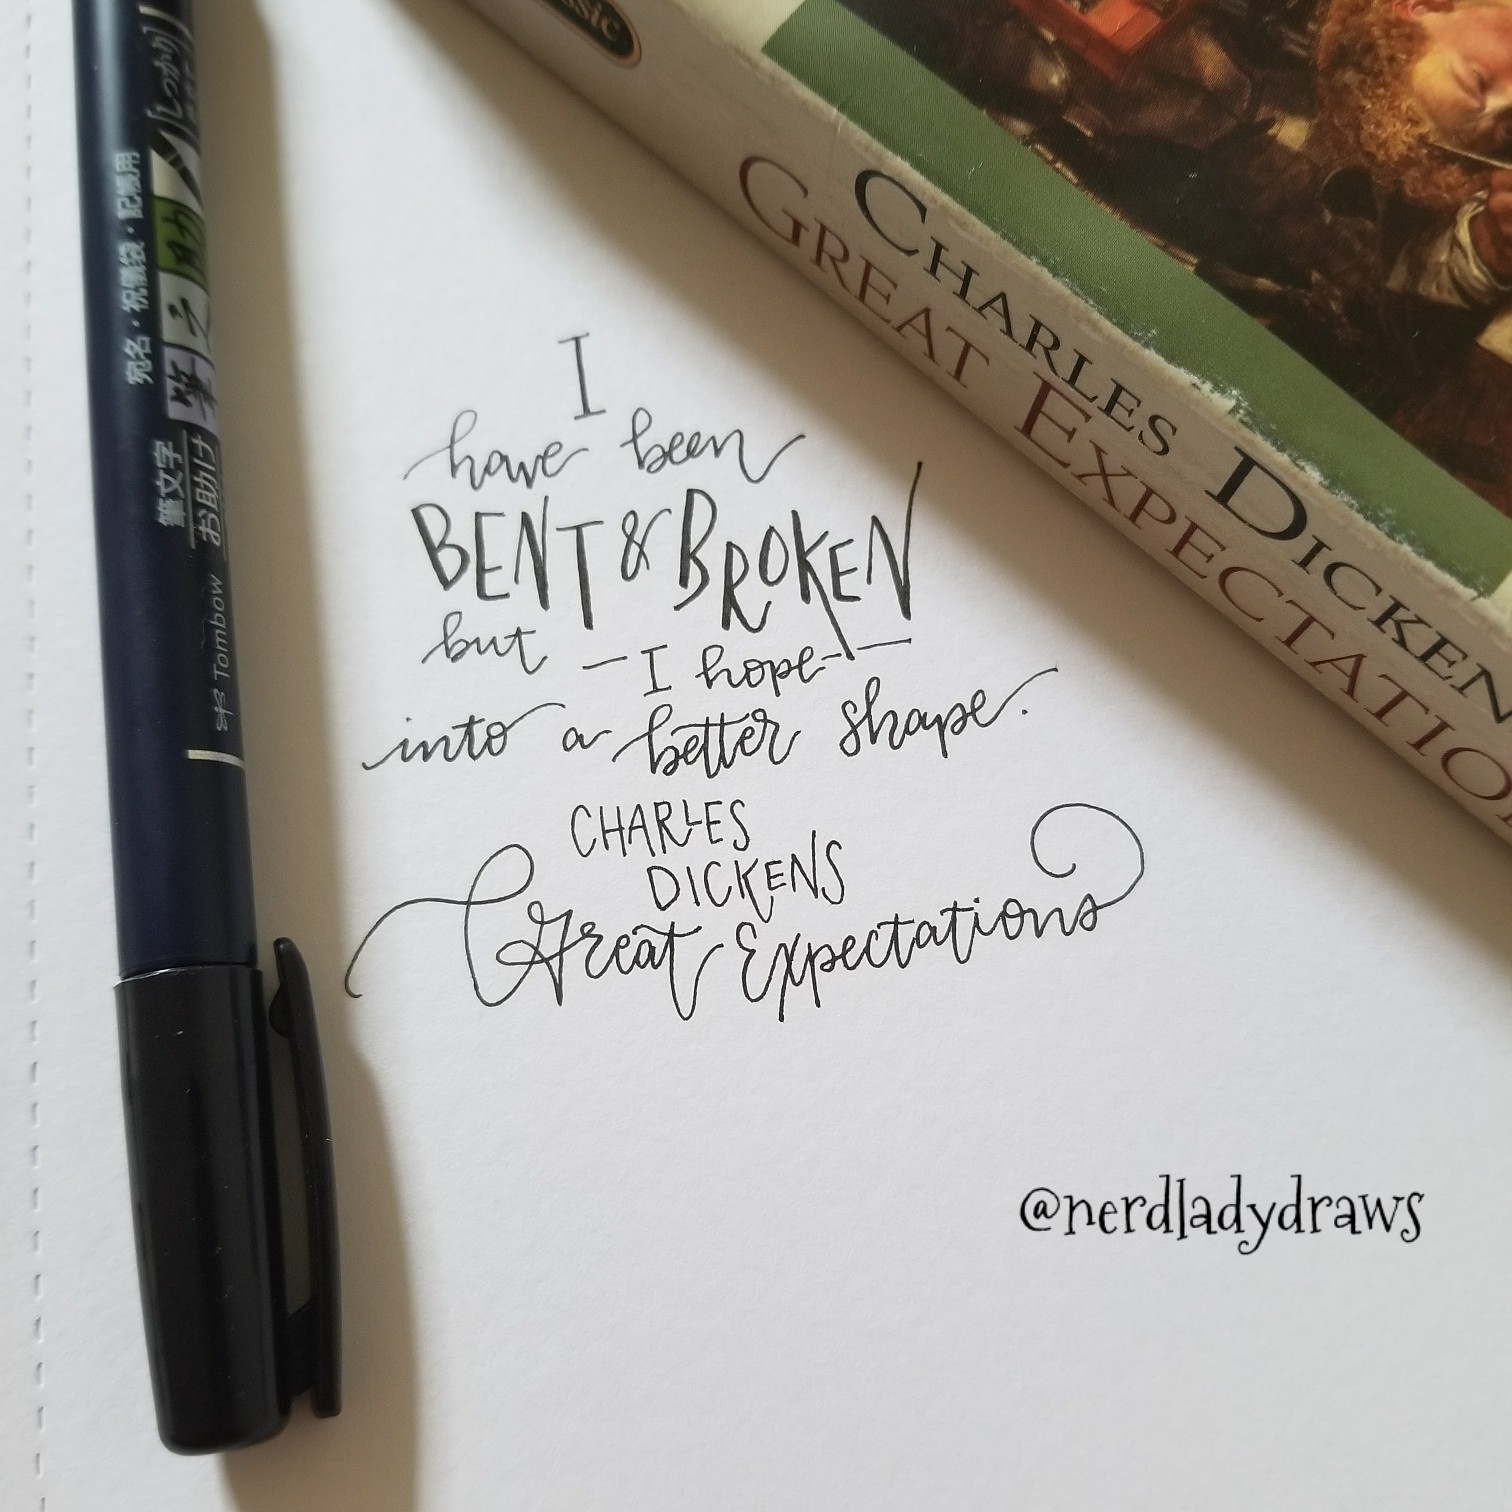 I
have been
BENT & BROKEN
but — I hope —
into a better shape.
CHARLES
DICKENS
Great Expectations
@nerdladydraws
CHARLES DICKEN
GREAT EXPECTATIO
ssic
しっかり
宛名・祝儀袋・記帳用
筆之助
筆文字
お助け
Tombow